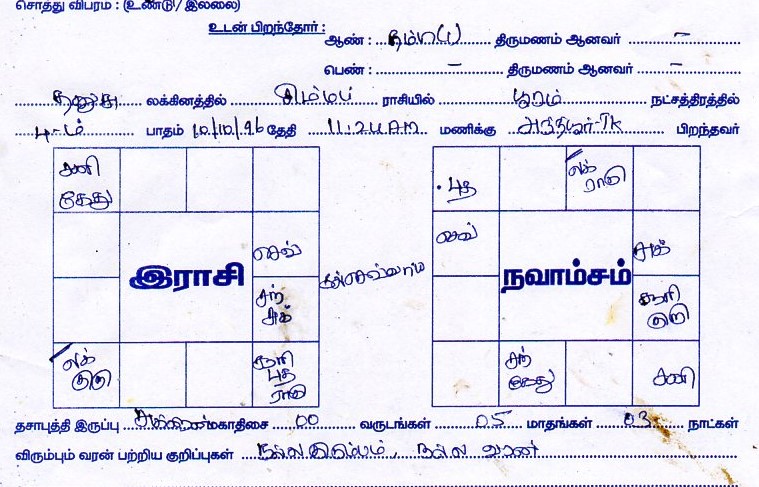 சொத்து விபரம் : (உண்டு/ இல்லை)
உடன் பிறந்தோர் :
ஆண் : தம்பி (1) திருமணம் ஆனவர் –
பெண் : – திருமணம் ஆனவர் –
தனுசு லக்கினத்தில் சிம்மம் ராசியில் பூரம் நட்சத்திரத்தில்
4-ம் பாதம் 10/10/96 தேதி 11:24 AM மணிக்கு பிறந்தவர்
சனி கேது
செவ்
சந் சுக்
லக் குரு
சூரி புத ராகு
இராசி
புத
லக் ராகு
செவ்
சுக்
சூரி குரு
சந் கேது
சனி
நவாம்சம்
தசாபுத்தி இருப்பு சுக்கிரன்மகாதிசை 00 வருடங்கள் 05 மாதங்கள் 03 நாட்கள்
விரும்பும் வரன் பற்றிய குறிப்புகள் நல்ல குடும்பம், நல்ல வரன்